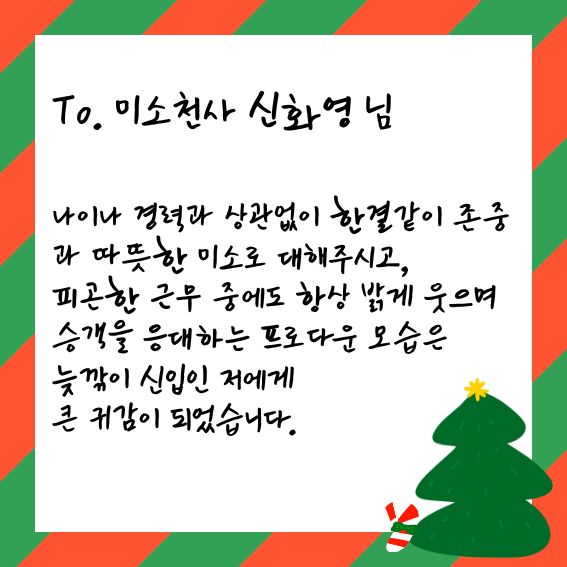 To. 미소천사 신화영 님
나이나 경력과 상관없이 한결같이 존중
과 따뜻한 미소로 대해주시고,
피곤한 근무 중에도 항상 밝게 웃으며
승객을 응대하는 프로다운 모습은
늦깎이 신입인 저에게
큰 귀감이 되었습니다.